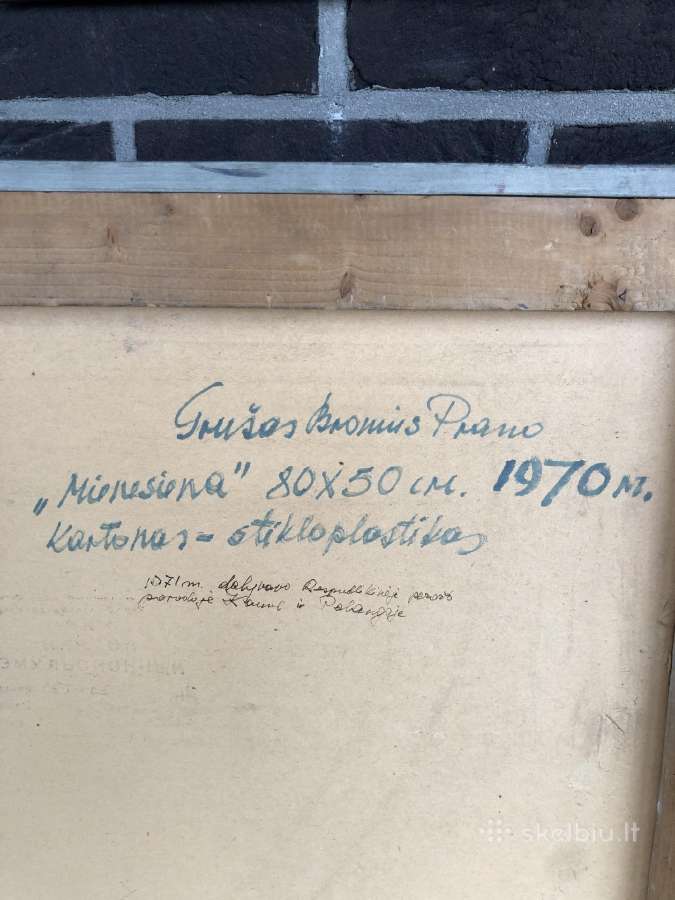 Grušas Bronius Prano
„Mienesiena" 80X50 cм. 1970 м.
Kartonas = stikloplastikas
1971 m. dalyvavo Respublikinėj
parodoje Kaune ir Palangoje
skelbiu.lt